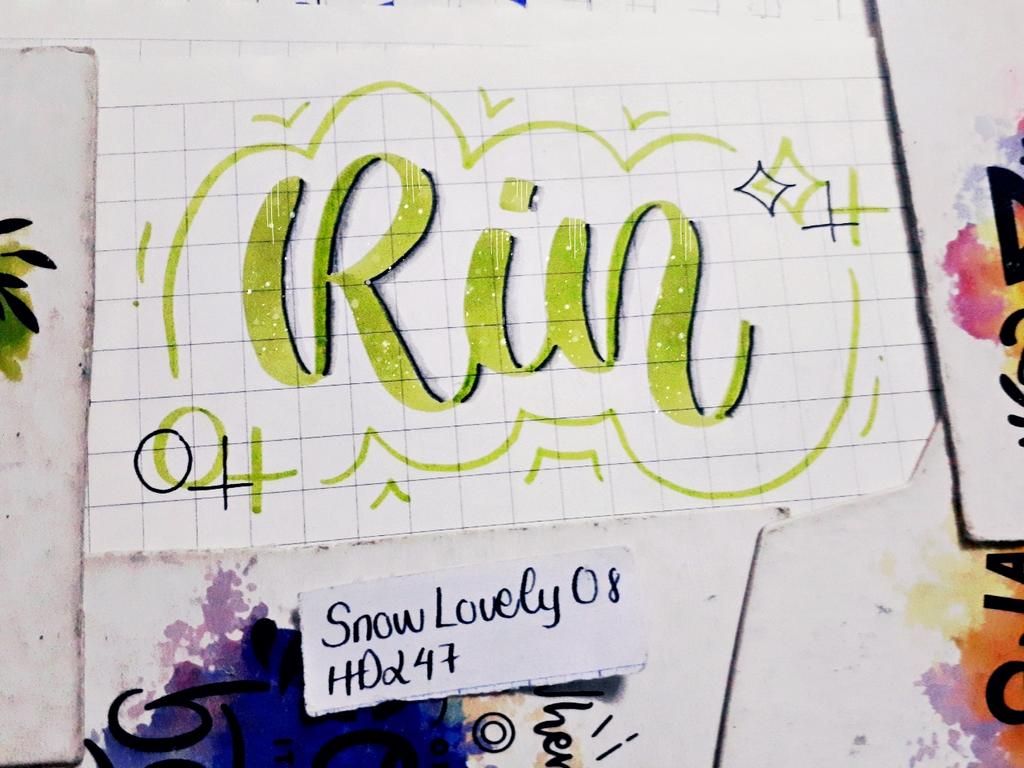 Rin
Snow Lovely 08
HD247